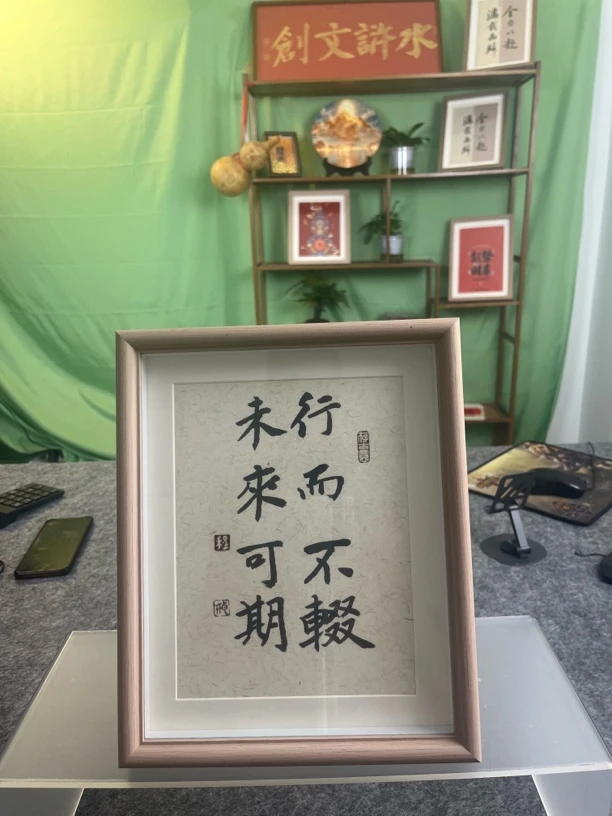 水滸文創
行而不輟
未來可期